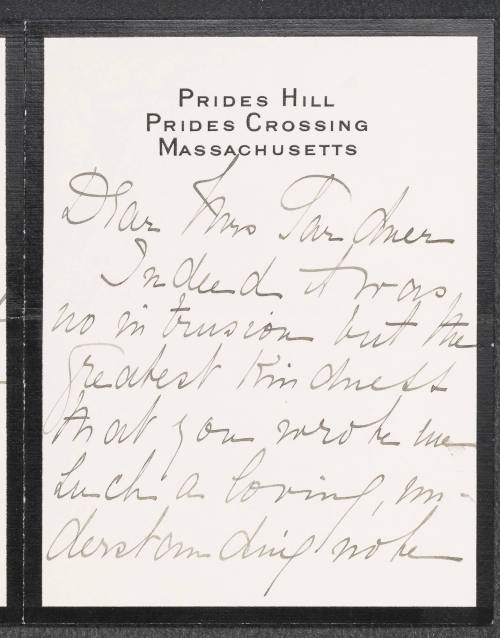 PRIDES HILL
PRIDES CROSSING
MASSACHUSETTS
Dear Mrs Gardner
Indeed it was
no intrusion but the
greatest Kindness
that you wrote me
such a loving, un-
derstanding note